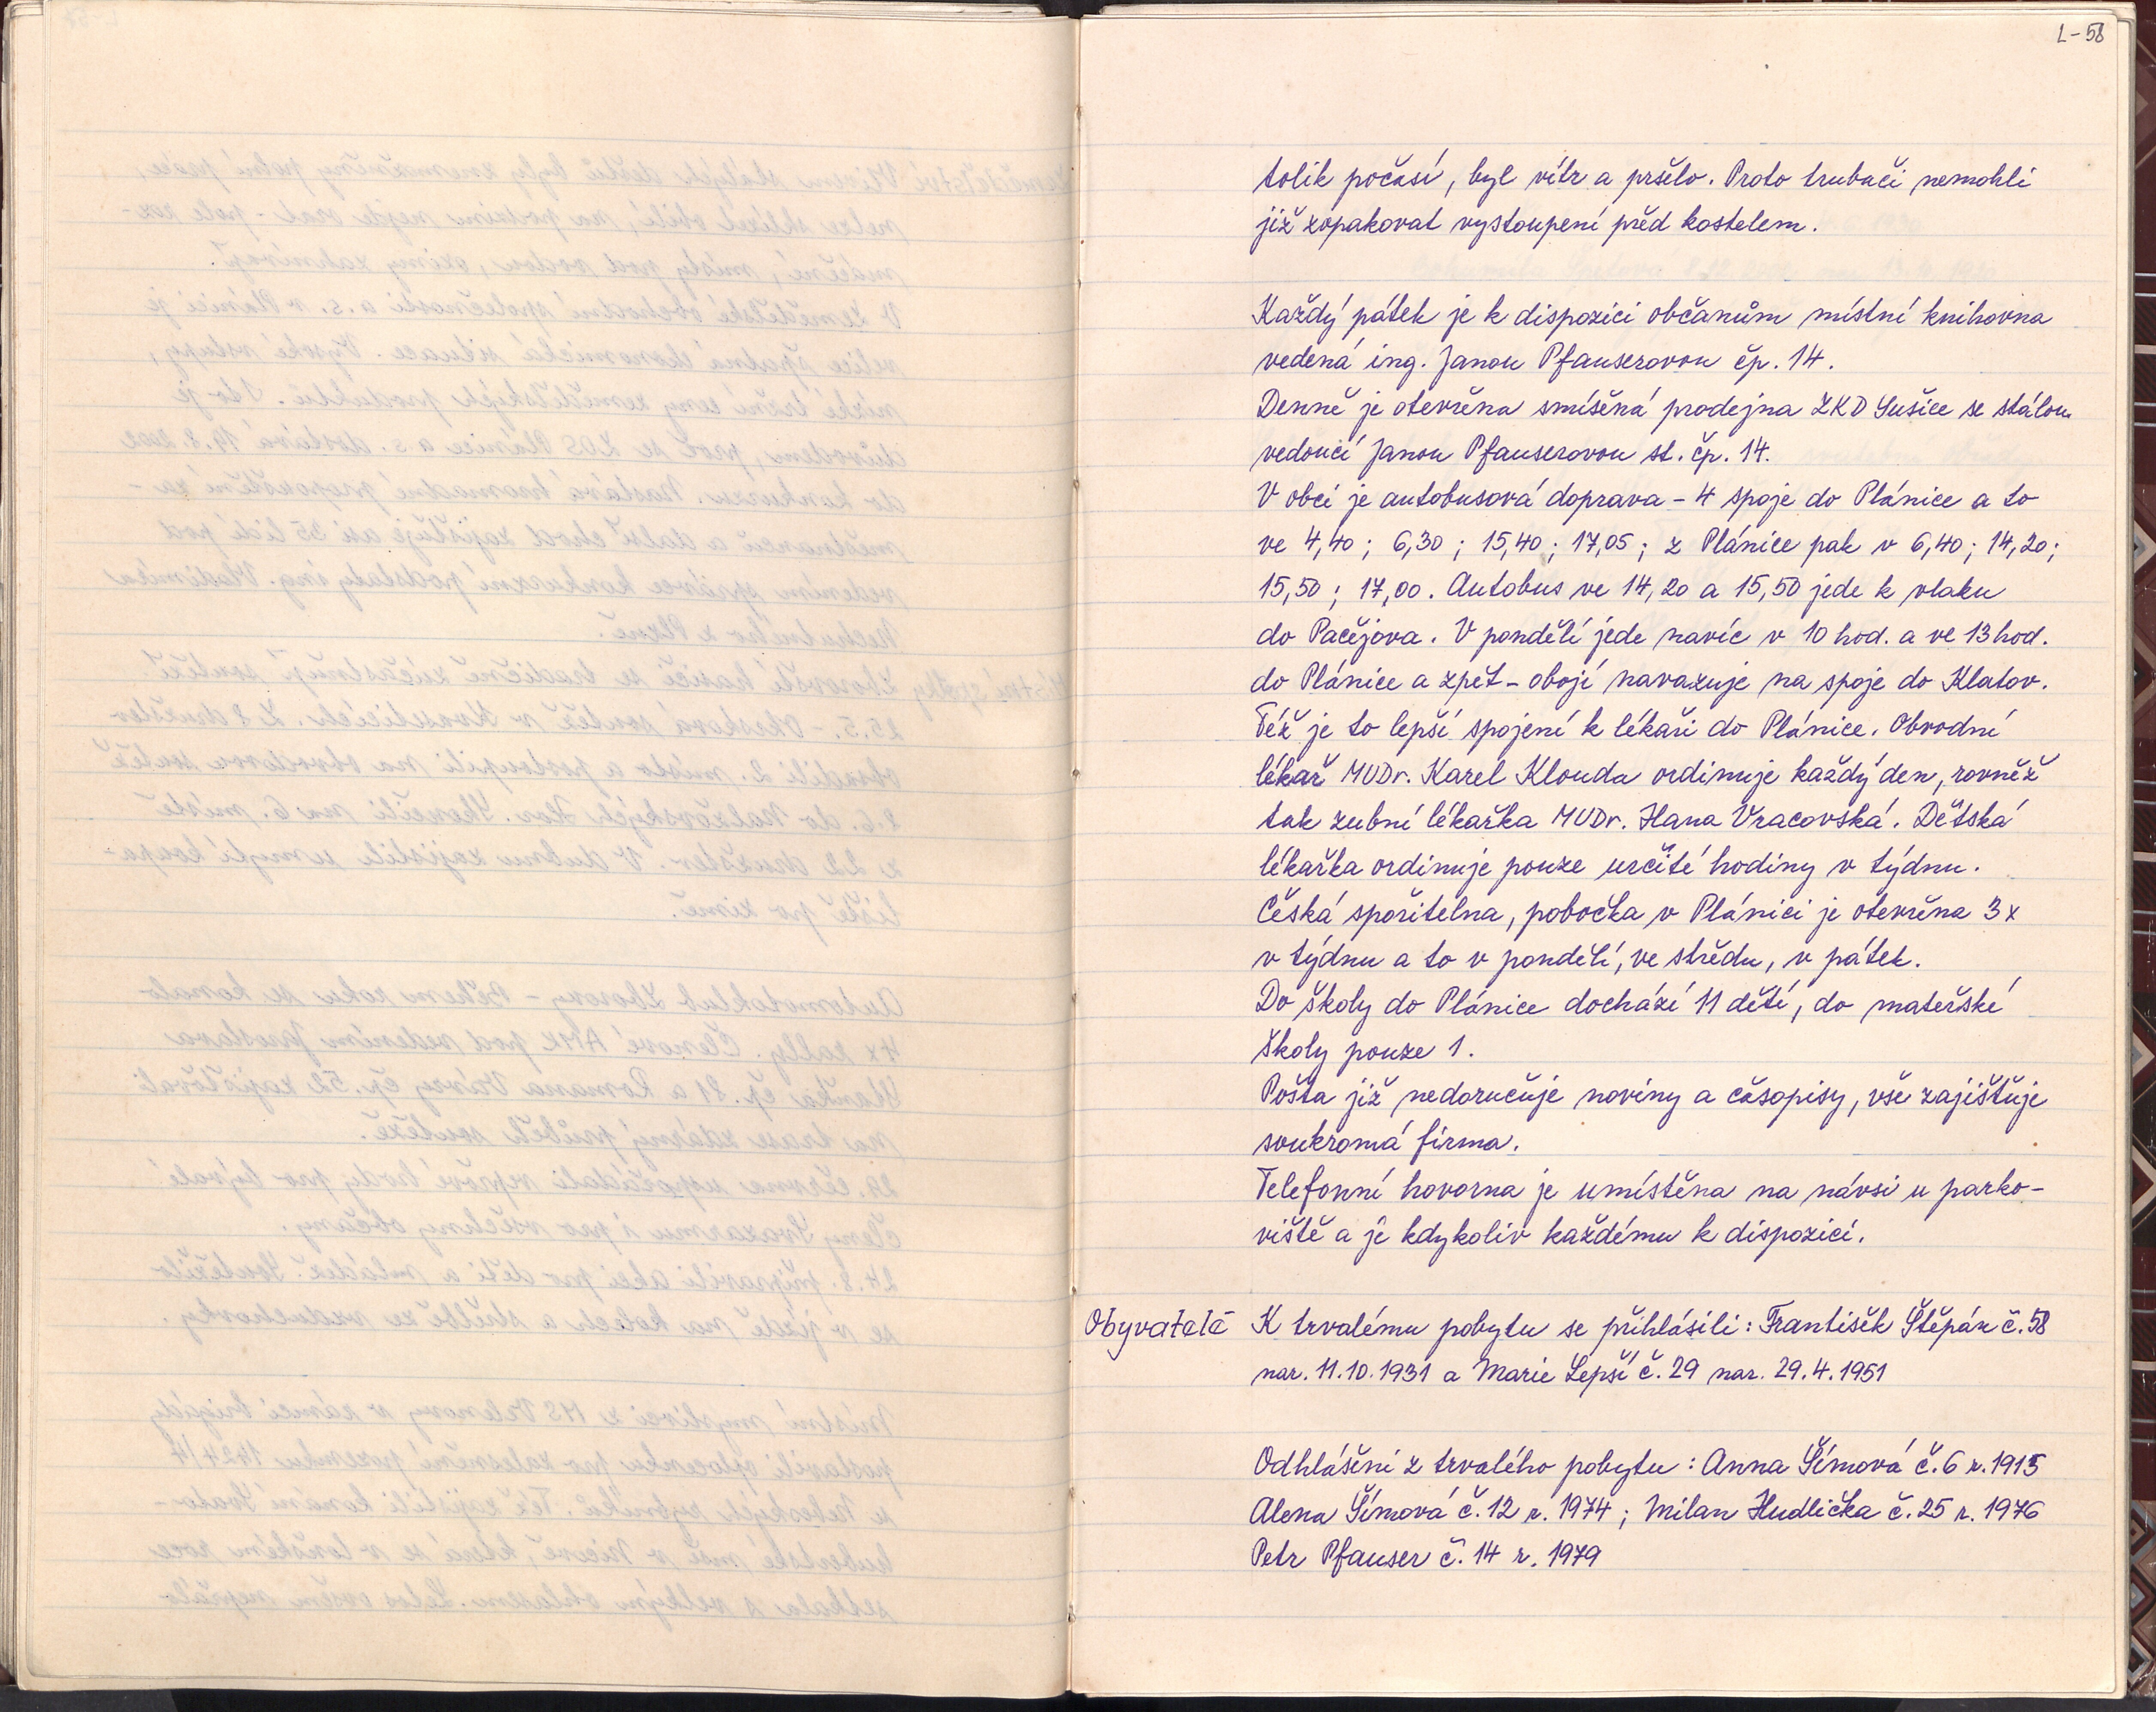 L-58
tolik počasí, byl vítr a pršelo. Proto trubači nemohli
již zopakovat vystoupení před kostelem.
Každý pátek je k dispozici občanům místní knihovna
vedená ing. Janou Pfauserovou čp. 14.
Denně je otevřena smíšená prodejna ZKD Sušice se stálou
vedoucí Janou Pfauserovou st. čp. 14.
V obci je autobusová doprava - 4 spoje do Plánice a to
ve 4,40; 6,30; 15,40; 17,05; z Plánice pak v 6,40; 14,20;
15,50; 17,00. Autobus ve 14,20 a 15,50 jede k vlaku
do Pačejova. V pondělí jede navíc v 10 hod. a ve 13 hod.
do Plánice a zpět - obojí navazuje na spoje do Klatov.
Též je to lepší spojení k lékaři do Plánice. Obvodní
lékař MUDr. Karel Klouda ordinuje každý den, rovněž
tak zubní lékařka MUDr. Hana Vracovská. Dětská
lékařka ordinuje pouze určité hodiny v týdnu.
Česká spořitelna, pobočka v Plánici je otevřena 3x
v týdnu a to v pondělí, ve středu, v pátek.
Do školy do Plánice dochází 11 dětí, do mateřské
školy pouze 1.
Pošta již nedoručuje noviny a časopisy, vše zajištuje
soukromá firma.
Telefonní hovorna je umístěna na návsi u parko-
viště a je kdykoliv každému k dispozici.
Obyvatelé K trvalému pobytu se přihlásili: František Štěpán č. 58
nar. 11.10.1931 a Marie Lepší č. 29 nar. 29.4.1951
Odhlášení z trvalého pobytu: Anna Šímová č. 6 r. 1915
Alena Šímová č. 12 r. 1974; Milan Hudlička č. 25 r. 1976
Petr Pfauser č. 14 r. 1979